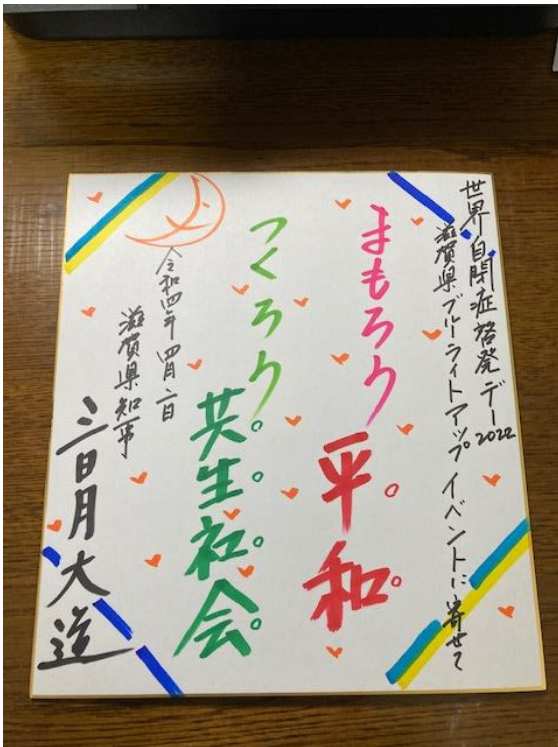 世界自閉症啓発デー2022
滋賀県ブルーライトアップイベントに寄せて
まもろう平和。
つくろう共生社会。
令和四年四月二日
滋賀県知事
三日月大造